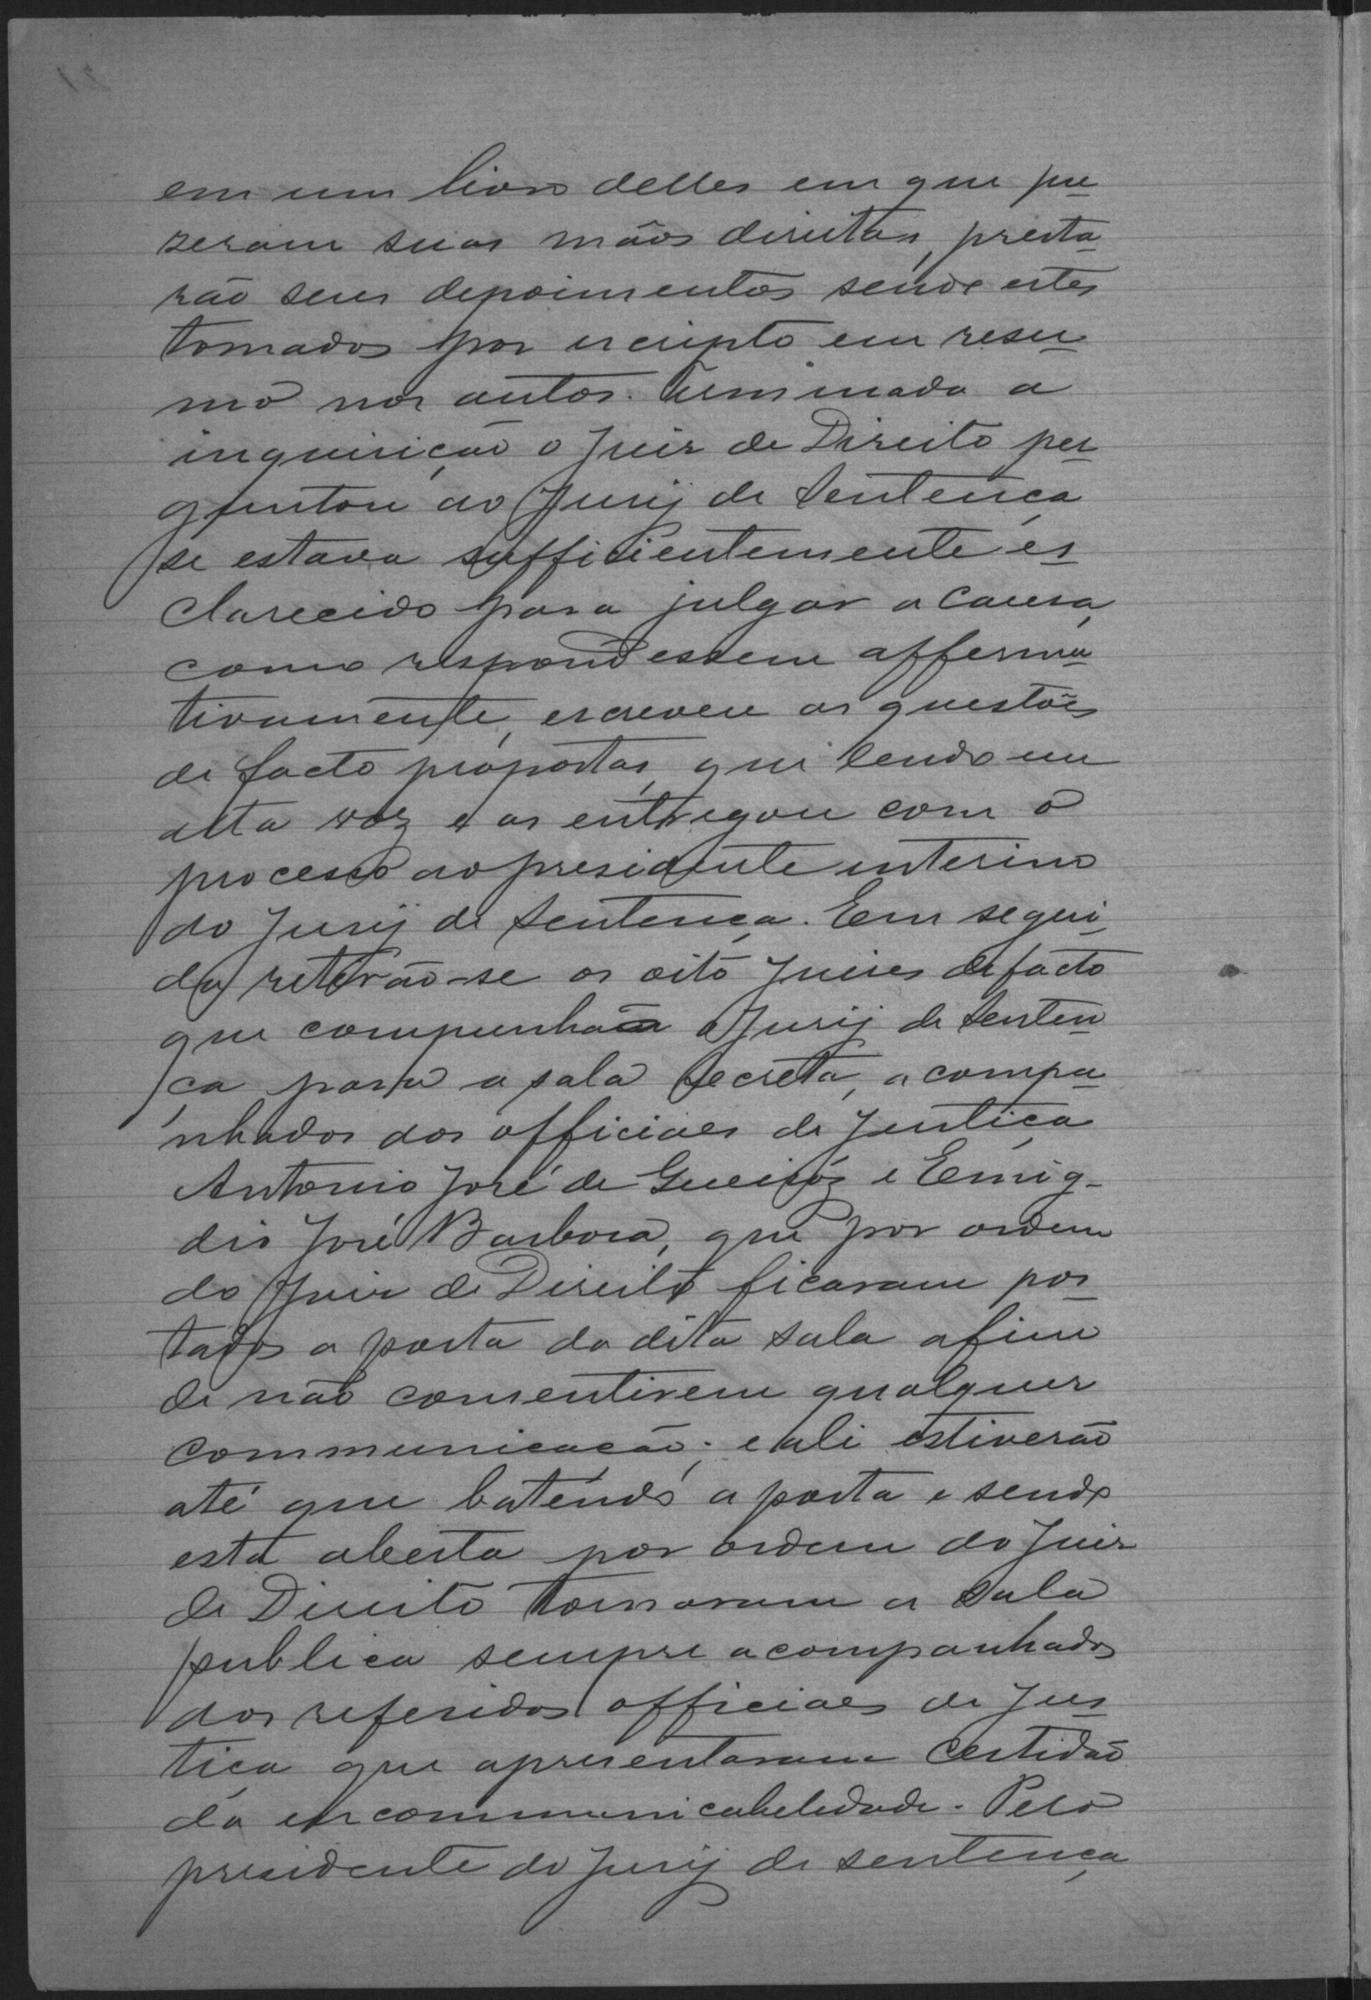 em um livro delles em que pu
zeram suas mãos direitas, presta
rão seus depoimentos sendo estes
tomados por escripto em resu
mo nos autos. Terminada a
inquirição o Juiz de Direito per
guntou ao Jury de Sentença
se estava sufficientemente es
clarecido para julgar a causa,
como respondessem afferma
tivamente, escreveu as questões
de facto propostas, que lendo em
alta voz e as entregou com o
processo ao presidente interino
do Jury de Sentença. Em segui
da retirão-se os oito Juizes de facto
que compunhão o Jury de Senten
ça para a sala secreta, acompa
nhados dos officiaes de Justiça
Antonio José de Gueiróz e Emig-
dio José Barbosa, que por ordem
do Juiz de Direito ficaram pos
tados a porta da dita sala afim
de não consentirem qualquer
communicação; e ali estiverão
até que batendo a porta e sendo
esta aberta por ordem do Juiz
de Direito tornaram a sala
publica sempre acompanhados
dos referidos officiaes de Jus
tiça que apresentaram certidão
da encommunicabelidade. Pelo
presidente do Jury de sentença